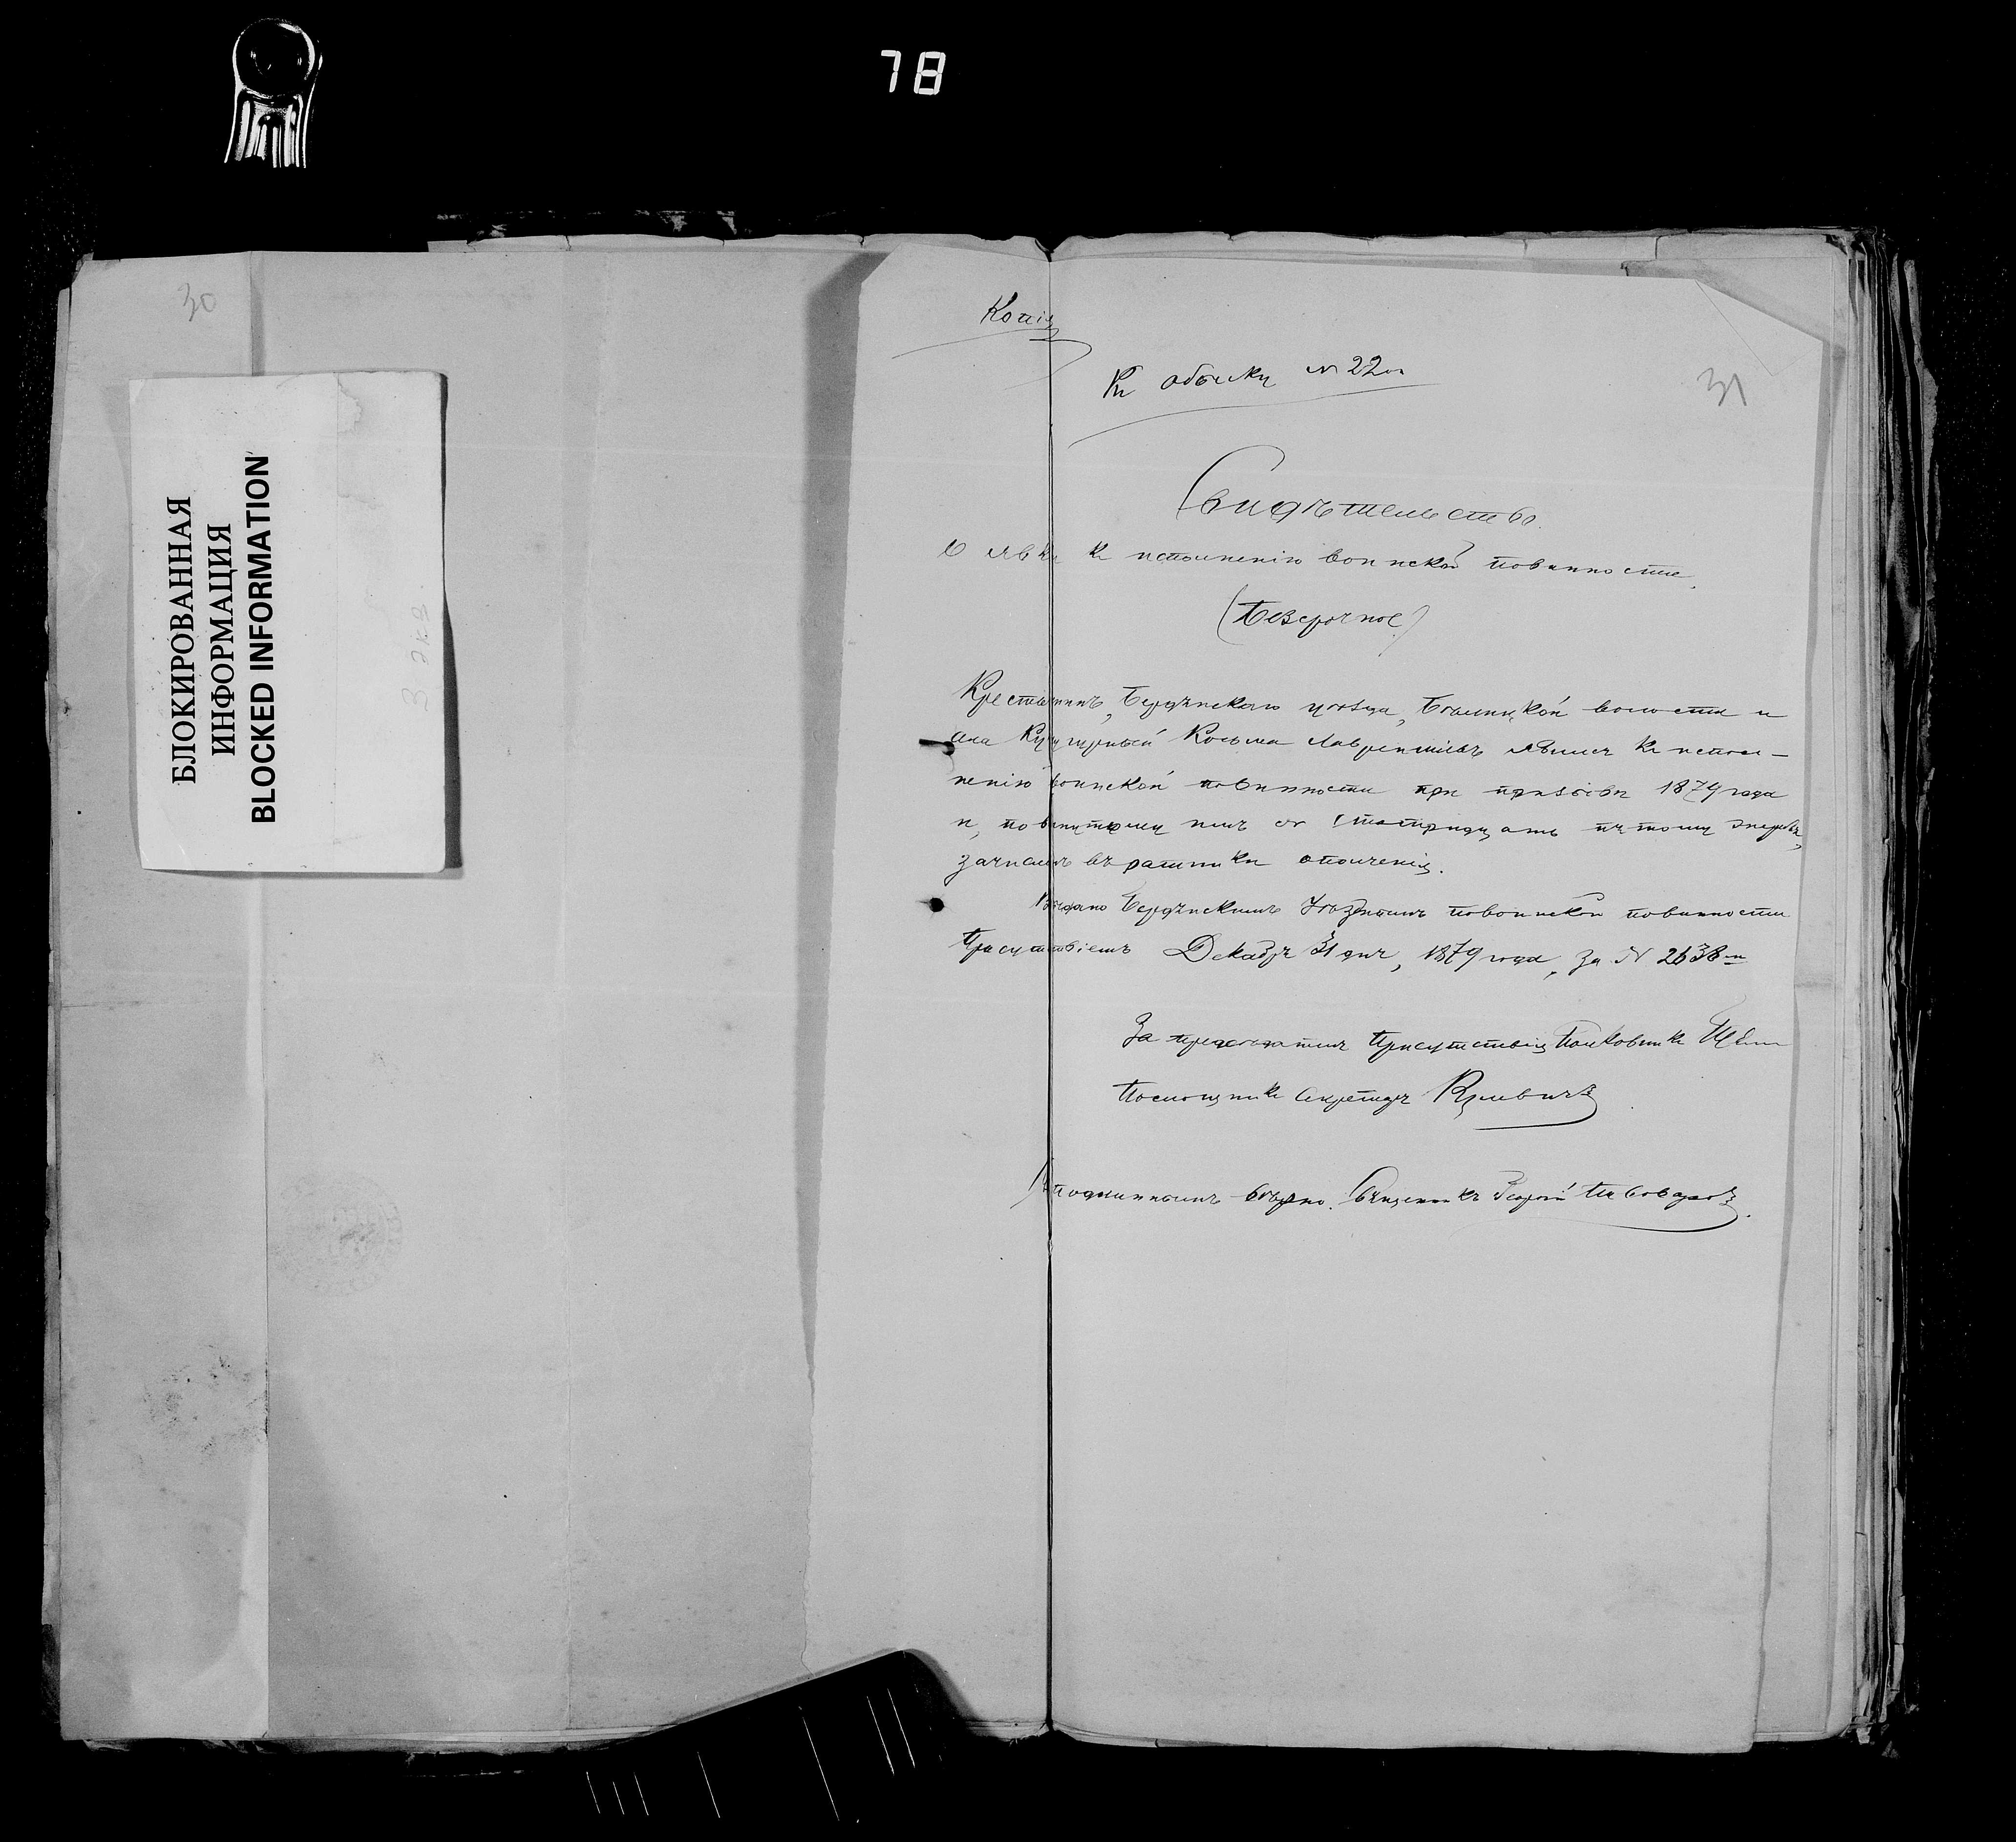 78
30
БЛОКИРОВАННАЯ
ИНФОРМАЦИЯ
BLOCKED INFORMATION
3 экв
Копія
Къ обыску № 22й
31
Свидѣтельство.
О явкѣ къ исполненію воинской повинности.
(Безсрочное)
Крестьянинъ, Бердянскаго уѣзда, волости и
села Косьма Лаврентіевъ явился къ испол-
ненію воинской повинности при призывѣ 1879 года
и, по вынутому имъ стотридцать пятому жеребью,
зачисленъ въ ратники ополченія.
Выдано Бердянскимъ Уѣзднымъ по воинской повинности
Присутствіемъ Декабря 31 дня, 1879 года, за № 2638 м
За предсѣдателя Присутствія Полковникъ
Помощникъ Секретаря
Съ подлиннымъ вѣрно. Священникъ Георгій